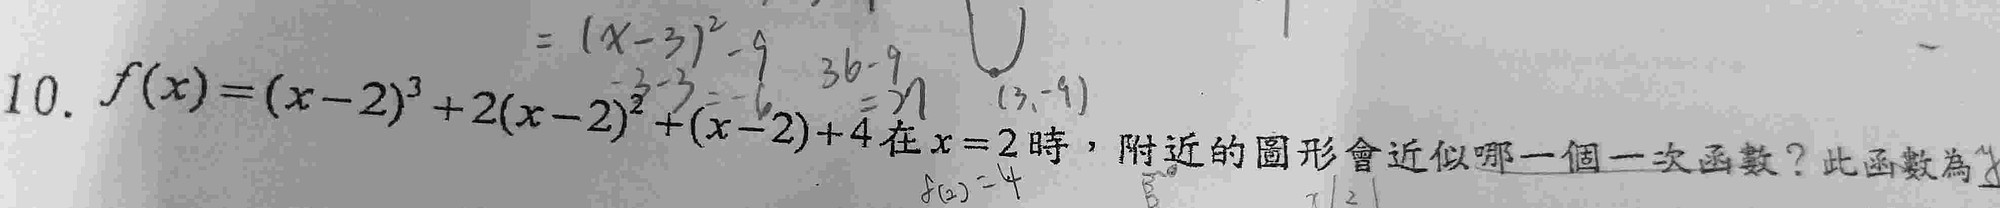 = (x-3)² - 9
-3-3=-6
36-9
=27
(3,-9)
10. f(x)=(x-2)³+2(x-2)²+(x-2)+4在x=2時，附近的圖形會近似哪一個一次函數？此函數為y
f(2)=4